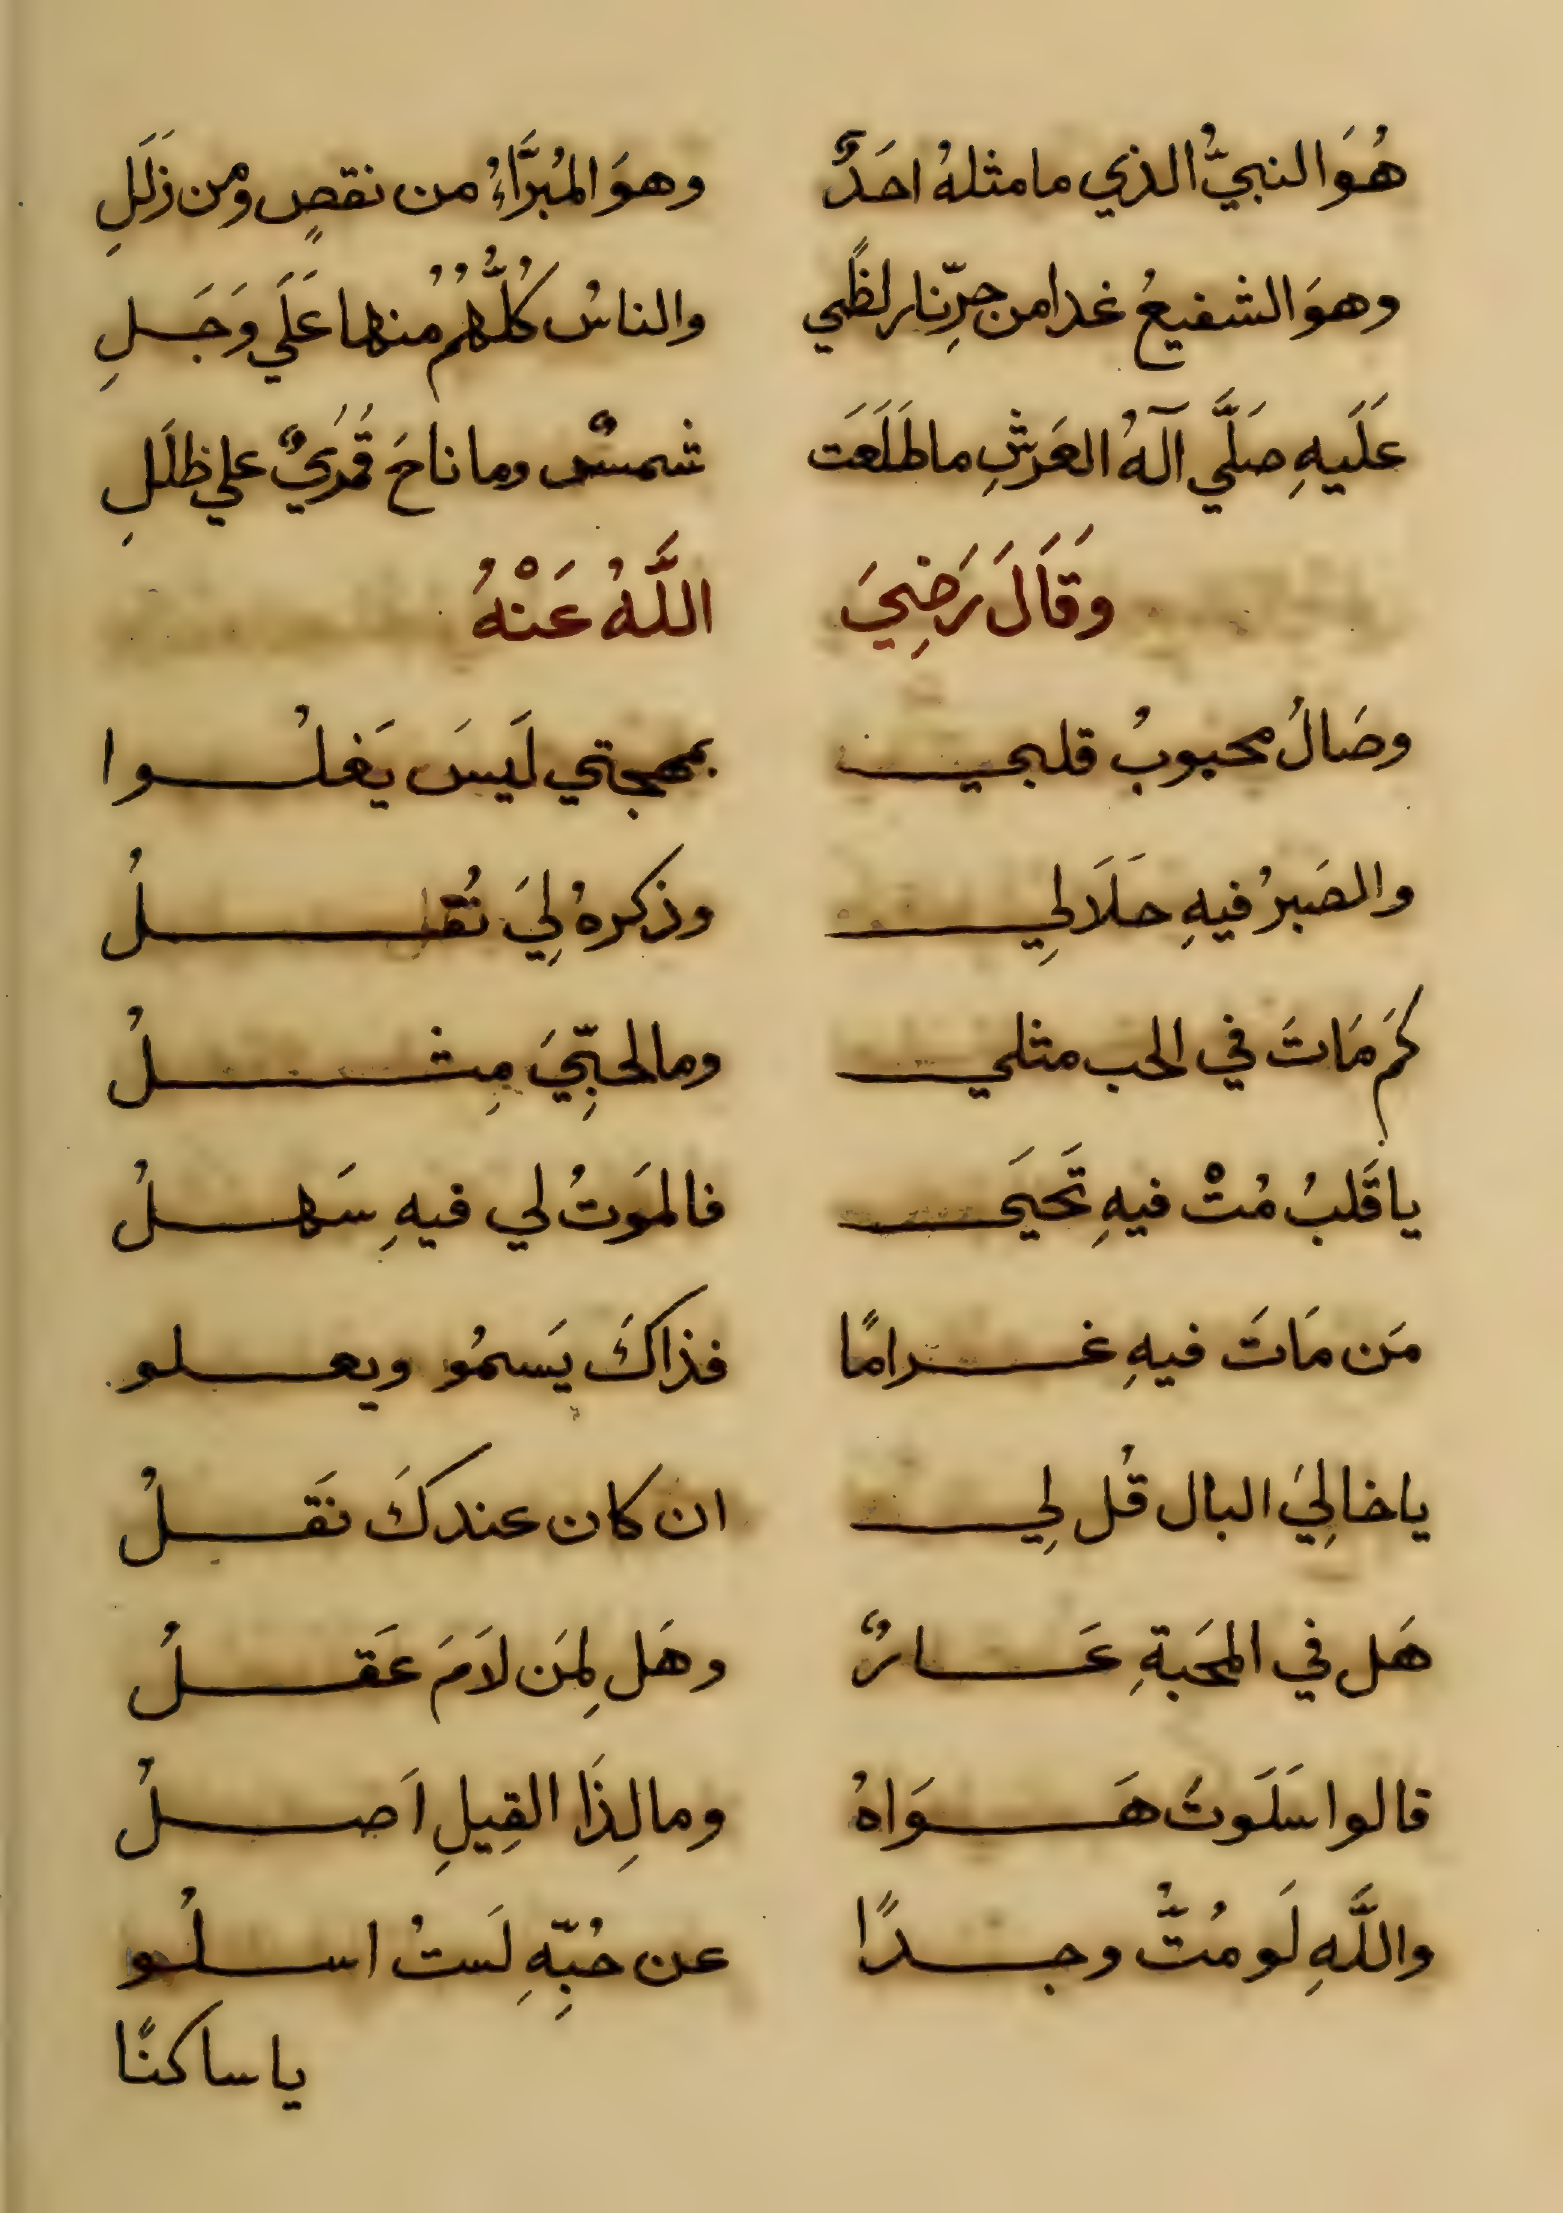 هُوَ النبيُّ الذي ما مثلهُ احَدٌ وهوَ المُبَرَّاءُ من نقصٍ ومن زَلَلِ
وهوَ الشفيعُ غدا من حرِّ نار لظًي والناسُ كُلُّهُمُ منها عَلَي وَجَلِ
عَلَيهِ صَلَّي آلهُ العَرشِ ما طَلَعَت شمسٌ وما ناحَ قُمُريٌّ علي طَلَلِ
وَقَالَ رَضِيَ اللَّهُ عَنْهُ
وصَالُ محبوبُ قلبي بمهجتي لَيسَ يَغلُوا
والصَبرُ فيهِ حَلَا لِي وذكرهُ لِيَ نُقلُ
كَم مَاتَ في الحب مثلي وما لحبِّيَ مِثلُ
يا قَلبُ مُتْ فيهِ تَحيَي فالمَوتُ لي فيهِ سَهلُ
مَن مَاتَ فيهِ غرامًا فذاكَ يَسمُو ويعلو
يا خالِيَ البال قُل لِي ان كان عندكَ نَقلُ
هَل في المحَبةِ عَارٌ وهَل لِمَن لَامَ عَقلُ
قالوا سَلَوتَ هَوَاهُ وما لِذَا القِيلِ اَصلُ
واللَّهِ لَو مُتُّ وجدًا عن حُبِّهِ لَستُ اسلُو
يا ساكنًا